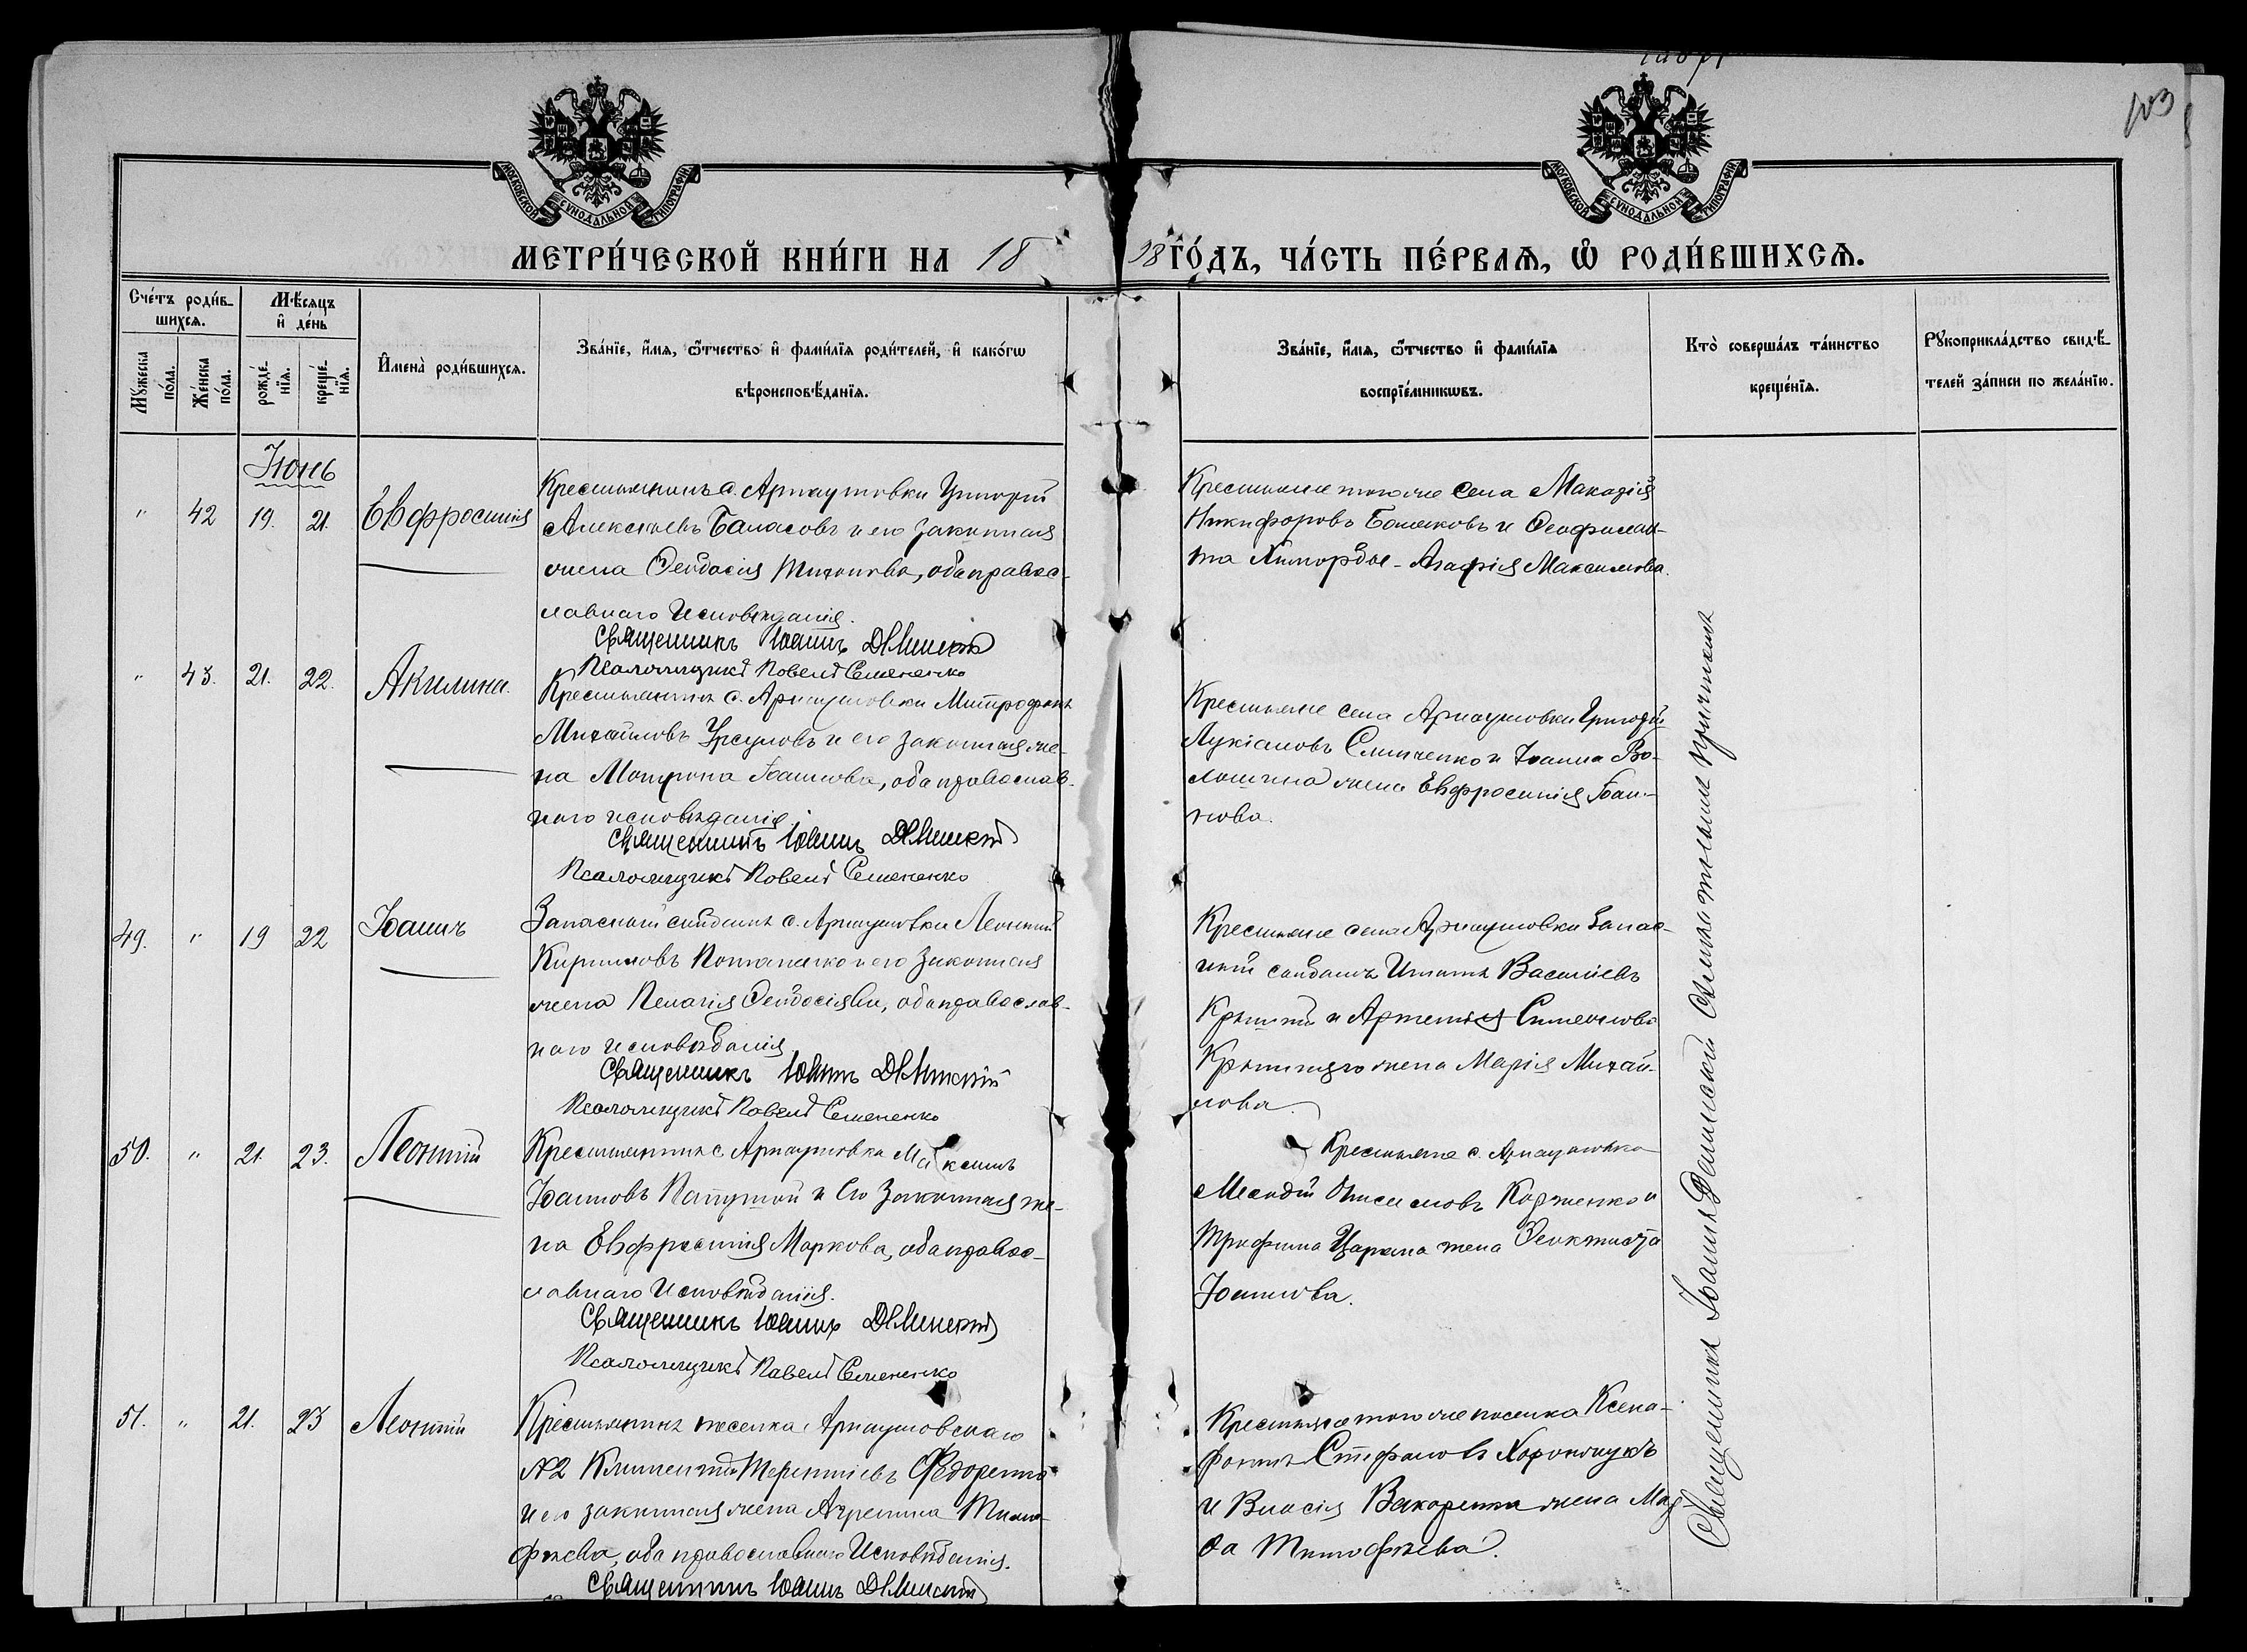 103
МОСКОВСКОЙ СѴНОДАЛЬНОЙ ТИПОГРАФІИ
МОСКОВСКОЙ СѴНОДАЛЬНОЙ ТИПОГРАФІИ
МЕТРИ́ЧЕСКОЙ КНИ́ГИ НА 18 98 ГО́ДЪ, ЧА́СТЬ ПЕ́РВАЯ, Ѡ РОДИ́ВШИХСЯ.
Сче́тъ роди́в-
шихся.
Мꙋжеска
по́ла.
Же́нска
по́ла.
Мѣ́сяцъ
и҆ де́нь
рожде́-
нїя.
креще́-
нїя.
И҆мена̀ роди́вшихся.
Зва́нїе, и҆́мя, ѻ҆́тчество и҆ фами́лїя роди́телей, и҆ како́гѡ
вѣроисповѣ́данїя.
Зва́нїе, и҆́мя, ѻ҆́тчество и҆ фами́лїя
воспрїе́мникѡвъ.
Кто̀ соверша́лъ та́инство
креще́нїя.
Рꙋкоприкла́дство свидѣ́-
телей за́писи по жела́нїю.
Іюнь
" 42 19. 21. Евфросинія
Крестьянинъ с. Арнаутовки Григорій
Алексѣевъ Баласовъ и его законная
жена Ѳеодосія Тихонова, оба правос-
лавнаго Исповѣданія.
Священникъ Іоаннъ
Псаломщикъ Павелъ Семененко
Крестьяне того же села Макарій
Никифоровъ и Ѳеофилак-
та - Агафія Максимова.
" 43. 21. 22. Акилина.
Крестьянинъ с. Арнаутовки Митрофанъ
Михайловъ Урсуловъ и его законная же-
на Матрона Іоаннова, оба православ-
наго исповѣданія.
Священникъ Іоаннъ
Псаломщикъ Павелъ Семененко
Крестьяне села Арнаутовки Григорій
Лукіановъ Слинченко и Іоанна Во-
лошина жена Евфросинія Іоан-
нова.
49. " 19 22 Іоаннъ
Запасный солдатъ с. Арнаутовки Леонтій
Кирилловъ Потапенко и его законная
жена Пелагія Ѳеодосіева, оба православ-
наго исповѣданія
Священникъ Іоаннъ
Псаломщикъ Павелъ Семененко
Крестьяне села Арнаутовки Запас-
ный солдатъ Игнатъ Васильевъ
и Артемія Симеонова
жена Марія Михай-
лова.
50. " 21. 23. Леонтій
Крестьянинъ с. Арнаутовки Максимъ
Іоанновъ Папушой и его Законная же-
на Евфросинія Маркова, оба правос-
лавнаго Исповѣданія.
Священникъ Іоаннъ
Псаломщикъ Павелъ Семененко
Крестьяне с. Арнаутовка
Меѳодій Онисимовъ и
Трофима Царана жена Ѳеоктиста
Іоаннова.
51. " 21. 23 Леонтій
Крестьянинъ поселка Арнаутовскаго
№2 Климентій Терентіевъ Федоренко
и его законная жена Агрепина Тимо-
фѣева, оба православнаго Исповѣданія.
Священникъ Іоаннъ
Крестьяне того же поселка Ксено-
фонтъ Стефановъ Харончукъ
и Власія жена
Тимофѣева.
Священникъ Іоаннъ